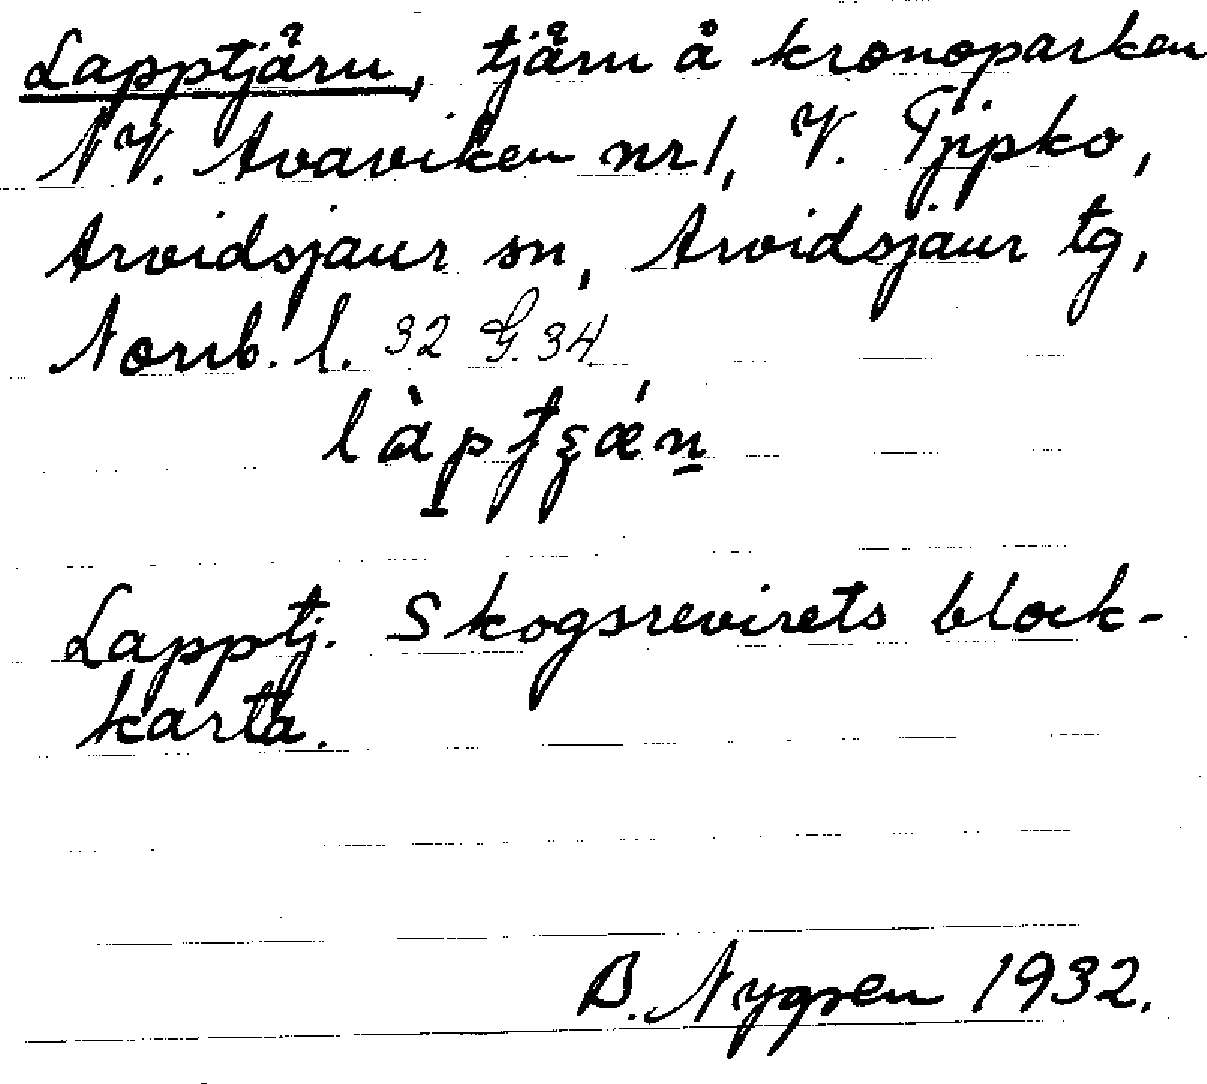 Lapptjärn, tjärn å kronoparken
N V. Avaviken nr 1, V. Tjipko,
Arvidsjaur sn, Arvidsjaur tg,
Norrb. l. 32 G. 34
Lapptj. Skogsrevirets block-
karta.
B. Nygren 1932.